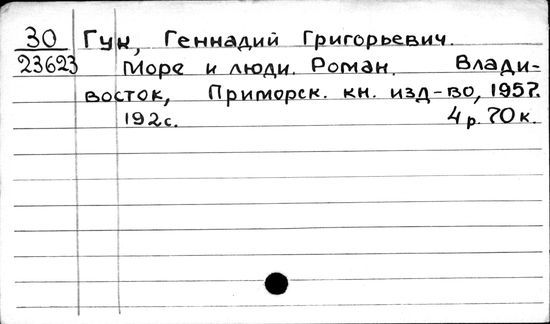 30 Гун, Геннадий Григорьевич.
23623 Море и люди. Роман. Влади-
восток, Приморск. кн. изд-во, 1957.
192с. 4р. 70к.